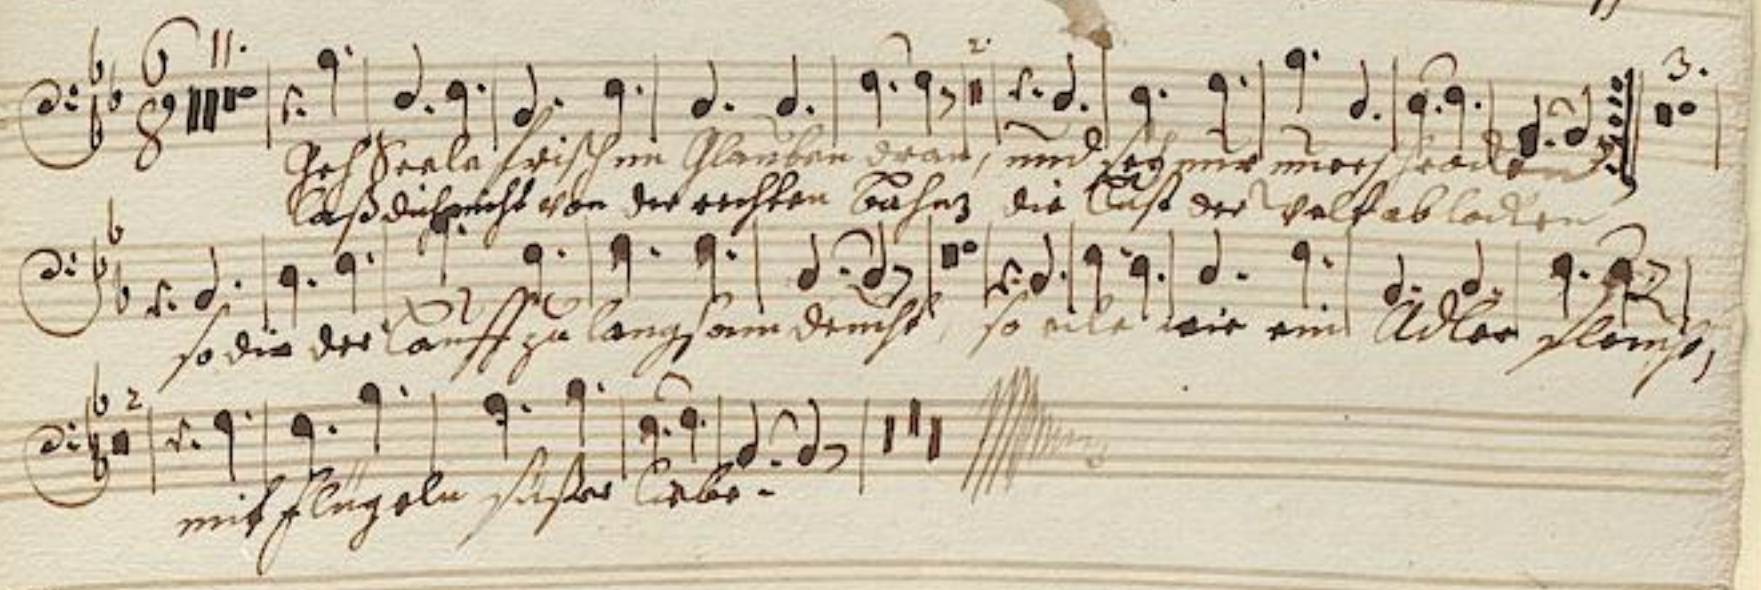 11.
2.
3.
Geh Seele frisch im Glauben dran, und sey nur unerschrocken
Laß dich nicht von der rechten bahn die Lust der Welt ablocken
so dir der Lauff zu langsam deucht, so eile wie ein Adler fleugt,
2
mit flügeln süßer Liebe.